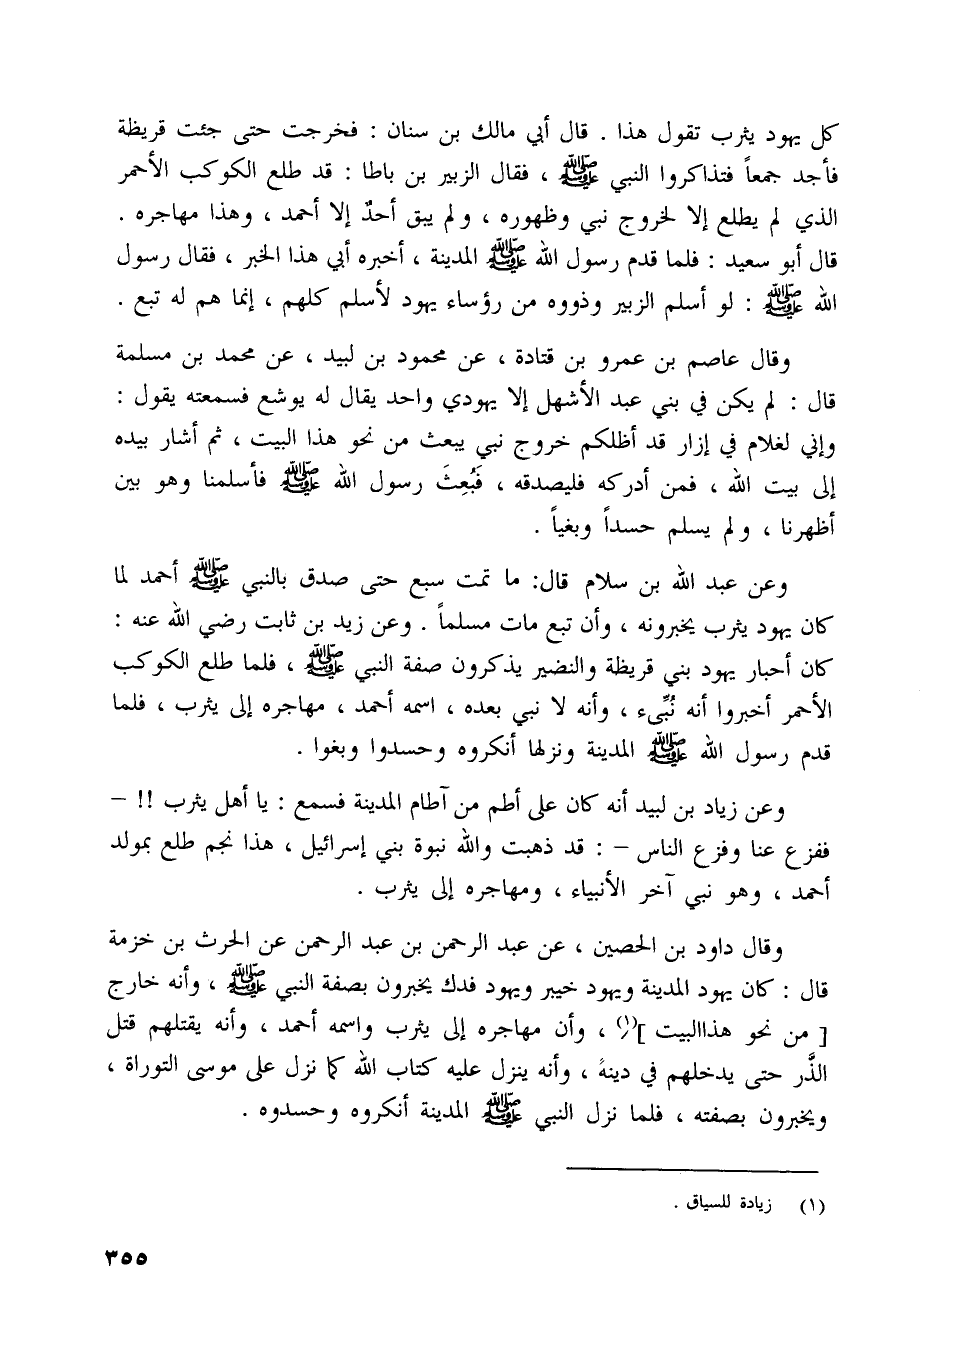 كل يهود يثرب تقول هذا . قال أبي مالك بن سنان : فخرجت حتى جئت قريظة
فأجد جمعاً فتذاكروا النبي ﷺ ، فقال الزبير بن باطا : قد طلع الكوكب الأحمر
الذي لم يطلع إلا لخروج نبي وظهوره ، ولم يبق أحدٌ إلا أحمد ، وهذا مهاجره .
قال أبو سعيد : فلما قدم رسول الله ﷺ المدينة ، أخبره أبي هذا الخبر ، فقال رسول
الله ﷺ : لو أسلم الزبير وذووه من رؤساء يهود لأسلم كلهم ، إنما هم له تبع .
وقال عاصم بن عمرو بن قتادة ، عن محمود بن لبيد ، عن محمد بن مسلمة
قال : لم يكن في بني عبد الأشهل إلا يهودي واحد يقال له يوشع فسمعته يقول :
وإني لغلام في إزار قد أظلكم خروج نبي يبعث من نحو هذا البيت ، ثم أشار بيده
إلى بيت الله ، فمن أدركه فليصدقه ، فَبُعِثَ رسول الله ﷺ فأسلمنا وهو بين
أظهرنا ، ولم يسلم حسداً وبغياً .
وعن عبد الله بن سلام قال: ما تمت سبع حتى صدق بالنبي ﷺ أحمد لما
كان يهود يثرب يخبرونه ، وأن تبع مات مسلماً . وعن زيد بن ثابت رضي الله عنه :
كان أحبار يهود بني قريظة والنضير يذكرون صفة النبي ﷺ ، فلما طلع الكوكب
الأحمر أخبروا أنه نُبِّىء ، وأنه لا نبي بعده ، اسمه أحمد ، مهاجره إلى يثرب ، فلما
قدم رسول الله ﷺ المدينة ونزلها أنكروه وحسدوا وبغوا .
وعن زياد بن لبيد أنه كان على أطم من آطام المدينة فسمع : يا أهل يثرب !! –
ففزع عنا وفزع الناس – : قد ذهبت والله نبوة بني إسرائيل ، هذا نجم طلع بمولد
أحمد ، وهو نبي آخر الأنبياء ، ومهاجره إلى يثرب .
وقال داود بن الحصين ، عن عبد الرحمن بن عبد الرحمن عن الحرث بن خزمة
قال : كان يهود المدينة ويهود خيبر ويهود فدك يخبرون بصفة النبي ﷺ ، وأنه خارج
[ من نحو هذاالبيت ](١) ، وأن مهاجره إلى يثرب واسمه أحمد ، وأنه يقتلهم قتل
الذَّر حتى يدخلهم في دينه ، وأنه ينزل عليه كتاب الله كما نزل على موسى التوراة ،
ويخبرون بصفته ، فلما نزل النبي ﷺ المدينة أنكروه وحسدوه .
(١) زيادة للسياق .
٣٥٥